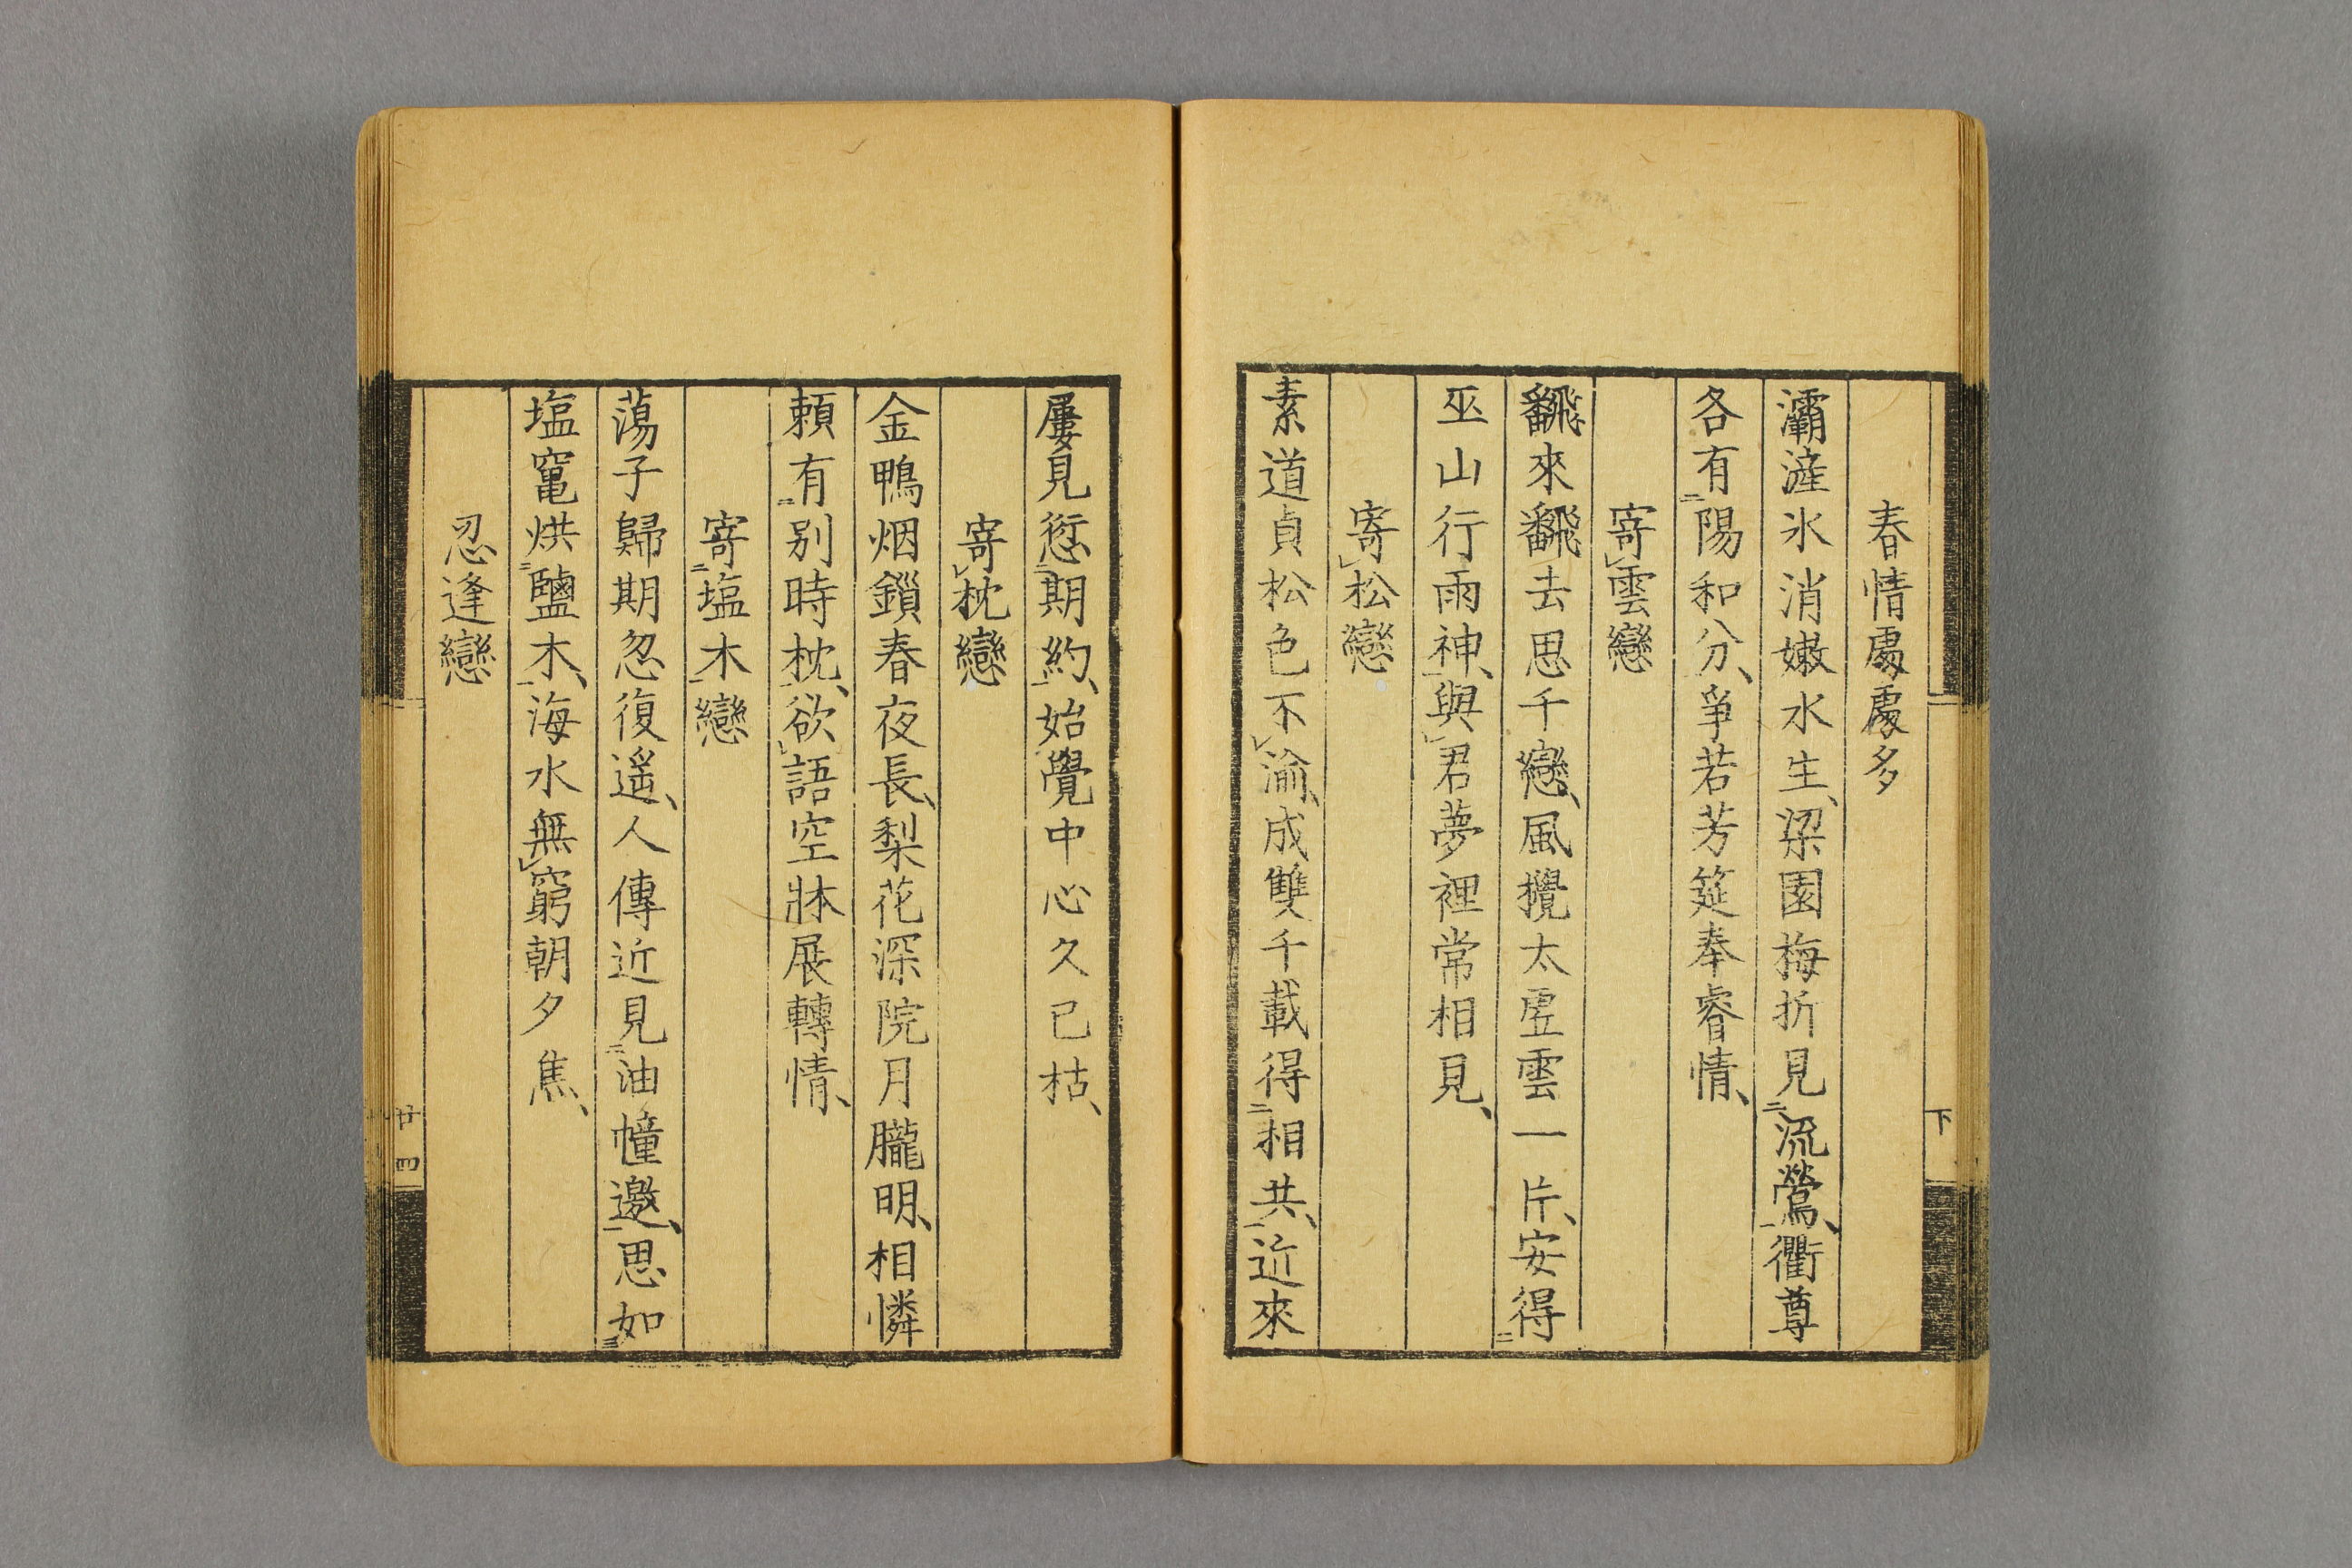 下
春情處處多
灞滻氷消嫩水生、梁園梅折見㆓流鶯㆒、衢尊
各有㆓陽和分、爭若芳筵奉睿情、
寄㆑雲戀
飜來飜去思千戀、風攪太虛雲一片、安得㆓
巫山行雨神㆒、與㆑君夢裡常相見、
寄㆑松戀
素道貞松色不㆑渝、成雙千載得㆓相共㆒、近來
屢見愆㆓期約㆒、始覺中心久已枯、
寄㆑枕戀
金鴨烟鎖春夜長、梨花深院月朧明、相憐
賴有㆓別時枕㆒、欲㆑語空牀展轉情、
寄㆓塩木㆒戀
蕩子歸期忽復遙、人傳近見㆓油幢邀㆒、思如㆘
塩竃烘㆓鹽木㆒、海水無㆑窮朝夕焦、
忍逢戀
廿四